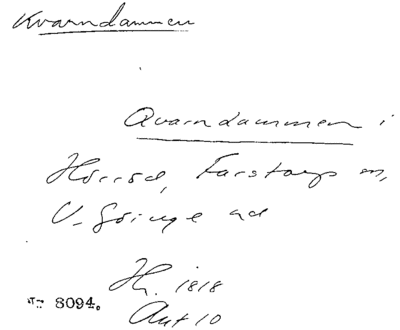 Kvarndammen
Qvarndammen i
Hörröd, Farstorp sn,
V. Göinge hd
Hh. 1818
Akt 10
8094.